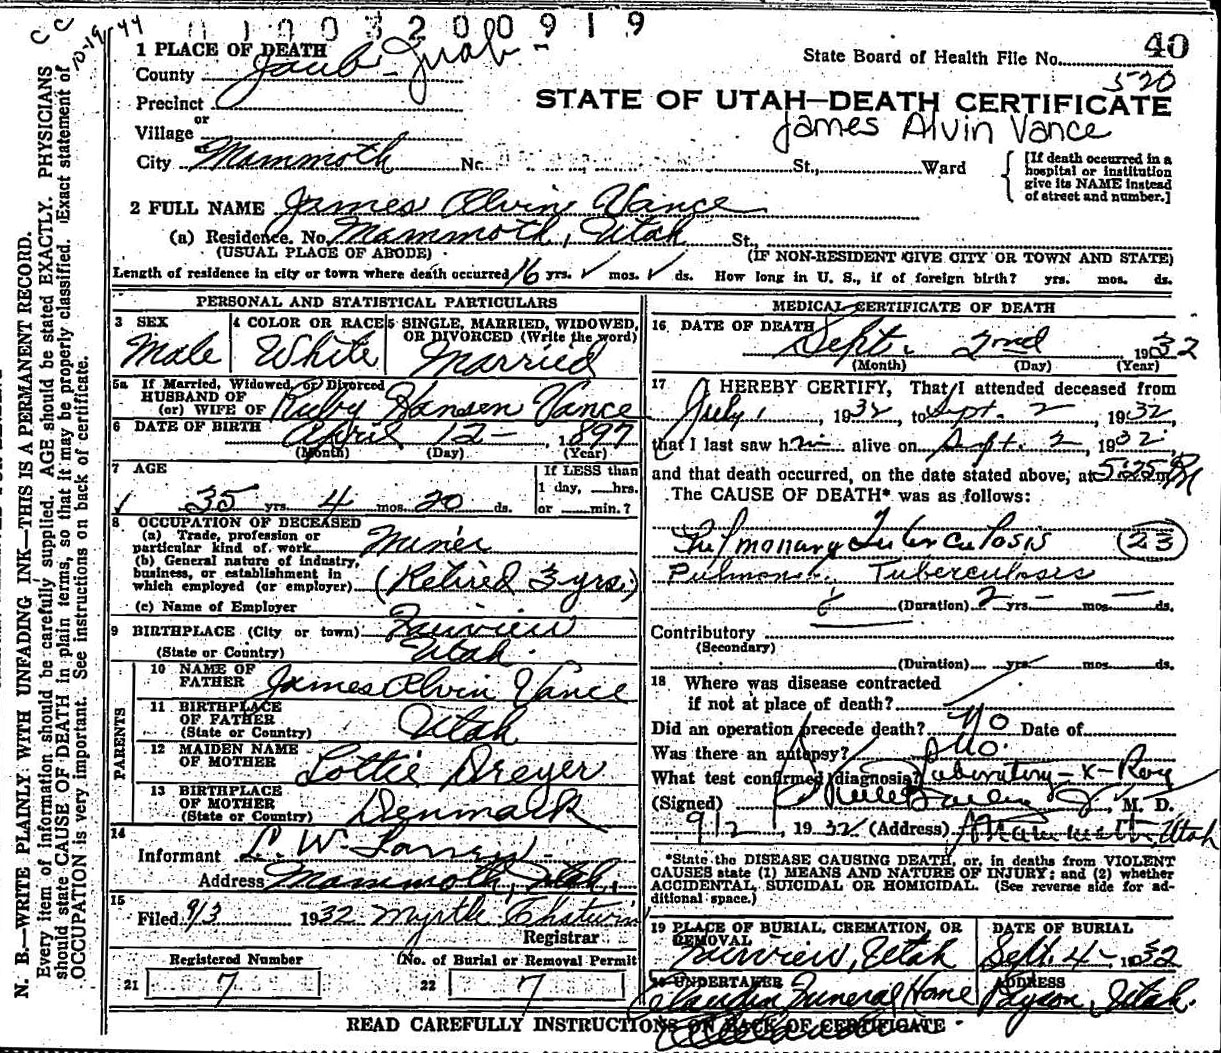 C C
10-19-44
0 1 0 0 3 2 0 0 9 1 9
40
1 PLACE OF DEATH
State Board of Health File No.
520
County Jaub - Juab -
Precinct
or
STATE OF UTAH—DEATH CERTIFICATE
Village
James Alvin Vance
City Mammoth No. St., Ward
[If death occurred in a
hospital or institution
give its NAME instead
of street and number.]
2 FULL NAME James Alvin Vance
(a) Residence. No. Mammoth, Utah St.,
(USUAL PLACE OF ABODE) (IF NON-RESIDENT GIVE CITY OR TOWN AND STATE)
Length of residence in city or town where death occurred 16 yrs. ✓ mos. ✓ ds. How long in U. S., if of foreign birth? yrs. mos. ds.
PERSONAL AND STATISTICAL PARTICULARS
3 SEX
Male
4 COLOR OR RACE
White
5 SINGLE, MARRIED, WIDOWED,
OR DIVORCED (Write the word)
Married
5a If Married, Widowed, or Divorced
HUSBAND OF
(or) WIFE OF Ruby Hansen Vance
6 DATE OF BIRTH April 12 - , 1897
(Month) (Day) (Year)
7 AGE
35 yrs. 4 mos. 20 ds.
If LESS than
1 day, hrs.
or min.?
8 OCCUPATION OF DECEASED
(a) Trade, profession or
particular kind of work Miner
(b) General nature of industry,
business, or establishment in
which employed (or employer) (Retired 3 yrs.)
(c) Name of Employer
9 BIRTHPLACE (City or town) Fairview
(State or Country) Utah.
PARENTS
10 NAME OF
FATHER James Alvin Vance
11 BIRTHPLACE
OF FATHER
(State or Country) Utah
12 MAIDEN NAME
OF MOTHER Lottie Dreyer
13 BIRTHPLACE
OF MOTHER
(State or Country) Denmark
14
Informant L. W.
Address Mammoth, Utah.
15
Filed 9/3 1932 Myrtle Chatwin
Registrar
Registered Number
21 7
(No. of Burial or Removal Permit
22 7
MEDICAL CERTIFICATE OF DEATH
16 DATE OF DEATH
Sept. 2nd 1932
(Month) (Day) (Year)
17 I HEREBY CERTIFY, That I attended deceased from
July 1, 1932, to Sept. 2, 1932,
that I last saw him alive on Sept. 2, 1932,
and that death occurred, on the date stated above, at 5:25 Pm
The CAUSE OF DEATH* was as follows:
Pulmonary Tuberculosis (23)
Pulmonary Tuberculosis
(Duration) 2 yrs. — mos. — ds.
Contributory
(Secondary)
(Duration) yrs. mos. ds.
18 Where was disease contracted
if not at place of death?
Did an operation precede death? No Date of
Was there an autopsy? No.
What test confirmed diagnosis? Laboratory - X-Ray
(Signed) Bailey Jr., M. D.
9/2, 1932 (Address) Mammoth, Utah
*State the DISEASE CAUSING DEATH, or, in deaths from VIOLENT
CAUSES state (1) MEANS AND NATURE OF INJURY; and (2) whether
ACCIDENTAL, SUICIDAL OR HOMICIDAL. (See reverse side for ad-
ditional space.)
19 PLACE OF BURIAL, CREMATION, OR
REMOVAL
Fairview, Utah
DATE OF BURIAL
Sept. 4 - 1932
20 UNDERTAKER
Claudin Funeral Home
ADDRESS
Payson, Utah.
READ CAREFULLY INSTRUCTIONS ON BACK OF CERTIFICATE
N. B.—WRITE PLAINLY WITH UNFADING INK—THIS IS A PERMANENT RECORD.
Every item of information should be carefully supplied. AGE should be stated EXACTLY. PHYSICIANS
should state CAUSE OF DEATH in plain terms, so that it may be properly classified. Exact statement of
OCCUPATION is very important. See instructions on back of certificate.